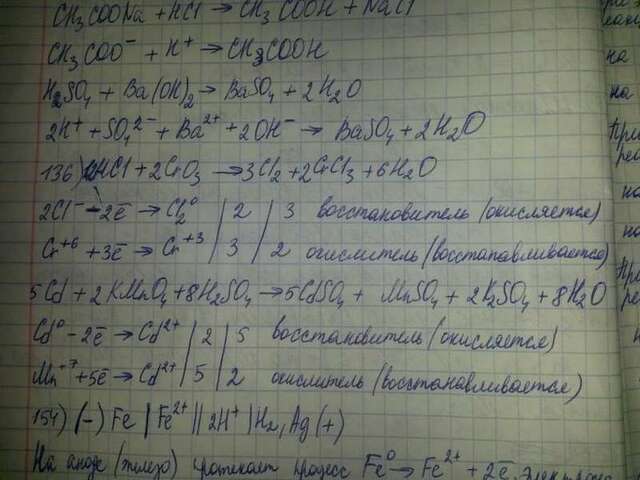 CH₃COONa + HCl → CH₃COOH + NaCl
CH₃COO⁻ + H⁺ → CH₃COOH
H₂SO₄ + Ba(OH)₂ → BaSO₄ + 2H₂O
2H⁺ + SO₄²⁻ + Ba²⁺ + 2OH⁻ → BaSO₄ + 2H₂O
136) HCl + 2CrO₃ → 3Cl₂ + 2CrCl₃ + 6H₂O
2Cl⁻ - 2ē → Cl₂⁰ | 2 | 3 восстановитель (окисляется)
Cr⁺⁶ + 3ē → Cr⁺³ | 3 | 2 окислитель (восстанавливается)
5Cd + 2KMnO₄ + 8H₂SO₄ → 5CdSO₄ + MnSO₄ + 2K₂SO₄ + 8H₂O
Cd⁰ - 2ē → Cd²⁺ | 2 | 5 восстановитель (окисляется)
Mn⁺⁷ + 5ē → Cd²⁺ | 5 | 2 окислитель (восстанавливается)
154) (-) Fe | Fe²⁺ || 2H⁺ | H₂, Ag (+)
На аноде (железо) протекает процесс Fe⁰ → Fe²⁺ + 2ē.
на
на
При
реа
на
на
При
ре